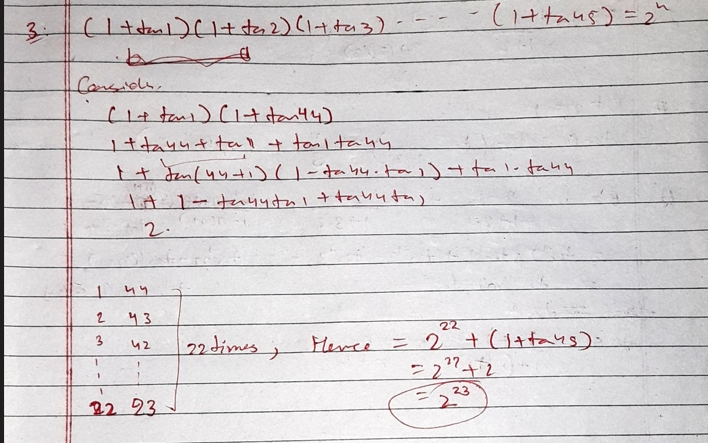 3: (1+tan1)(1+tan2)(1+ta3) - - - - (1+tan45) = 2ⁿ
Consider.
(1+tan1)(1+tan44)
1+ta44+ta1+tan1ta44
1+tan(44+1)(1-ta44.ta1)+ta1.ta44
1+1-ta44ta1+ta44ta1
2.
1 44
2 43
3 42
22 23
22 times, Hence = 2²² + (1+ta45).
= 2²² + 2
= 2²³